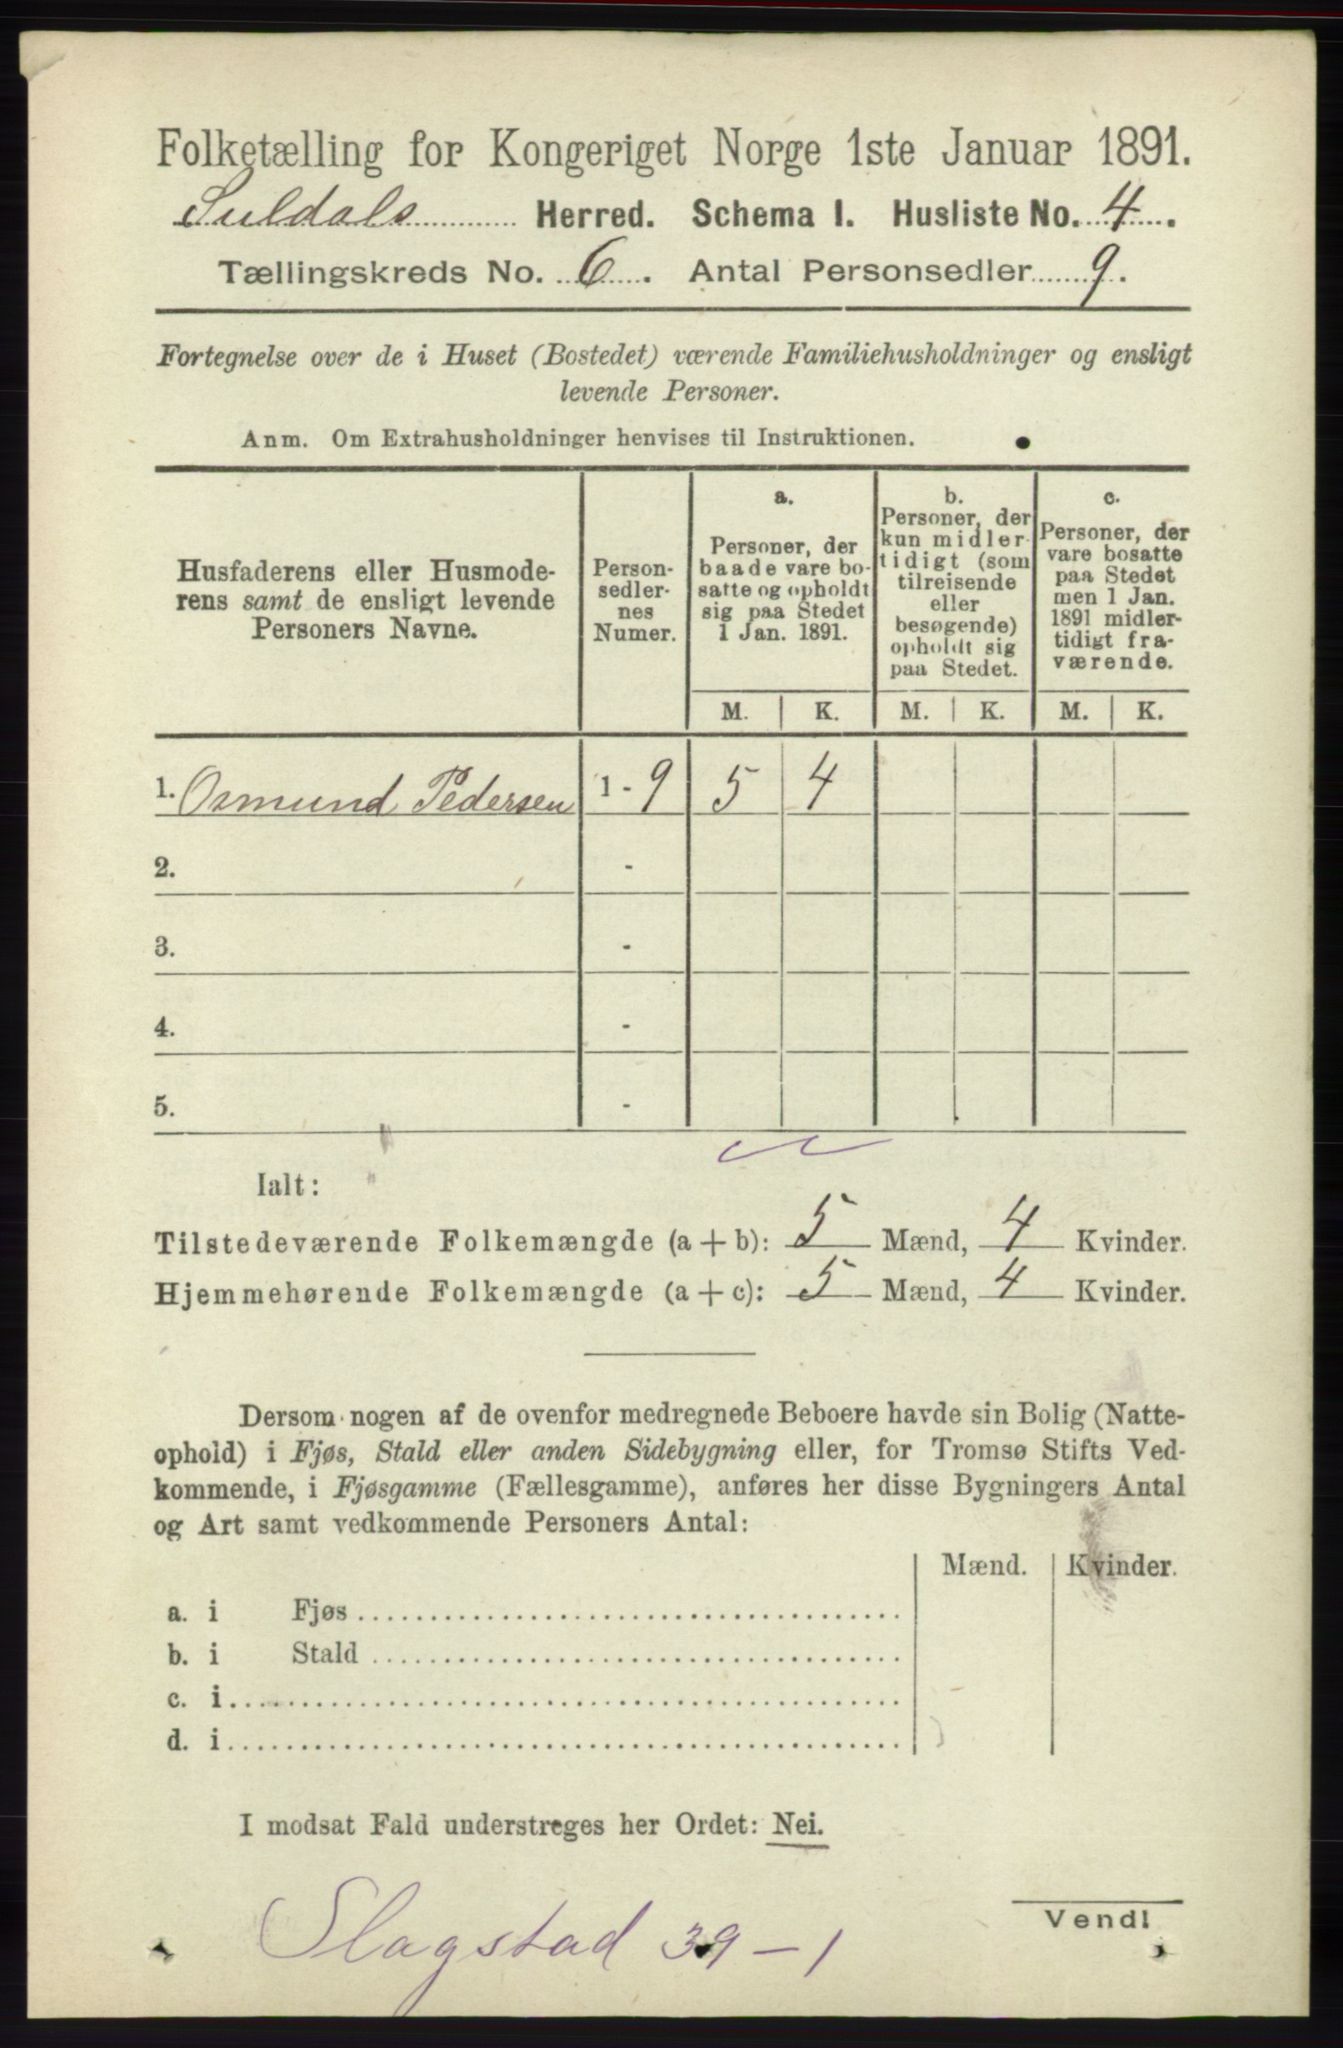 Folketælling for Kongeriget Norge 1ste Januar 1891.
Suldals Herred. Schema I. Husliste No. 4.
Tællingskreds No. 6. Antal Personsedler 9.
Fortegnelse over de i Huset (Bostedet) værende Familiehusholdninger og ensligt
levende Personer.
Anm. Om Extrahusholdninger henvises til Instruktionen.
Husfaderens eller Husmode-
rens samt de ensligt levende
Personers Navne.
Person-
sedler-
nes
Numer.
a.
Personer, der
baade vare bo-
satte og opholdt
sig paa Stedet
1 Jan. 1891.
b.
Personer, der
kun midler-
tidigt (som
tilreisende
eller
besøgende)
opholdt sig
paa Stedet.
c.
Personer, der
vare bosatte
paa Stedet
men 1 Jan.
1891 midler-
tidigt fra-
værende.
M. K. M. K. M. K.
1. Osmund Pedersen 1 - 9 5 4
2. -
3. -
4. -
5. -
Ialt:
Tilstedeværende Folkemængde (a + b): 5 Mænd, 4 Kvinder.
Hjemmehørende Folkemængde (a + c): 5 Mænd, 4 Kvinder.
Dersom nogen af de ovenfor medregnede Beboere havde sin Bolig (Natte-
ophold) i Fjøs, Stald eller anden Sidebygning eller, for Tromsø Stifts Ved-
kommende, i Fjøsgamme (Fællesgamme), anføres her disse Bygningers Antal
og Art samt vedkommende Personers Antal:
Mænd. Kvinder.
a. i Fjøs
b. i Stald
c. i
d. i
I modsat Fald understreges her Ordet: Nei.
Vend!
Slagstad 39 - 1